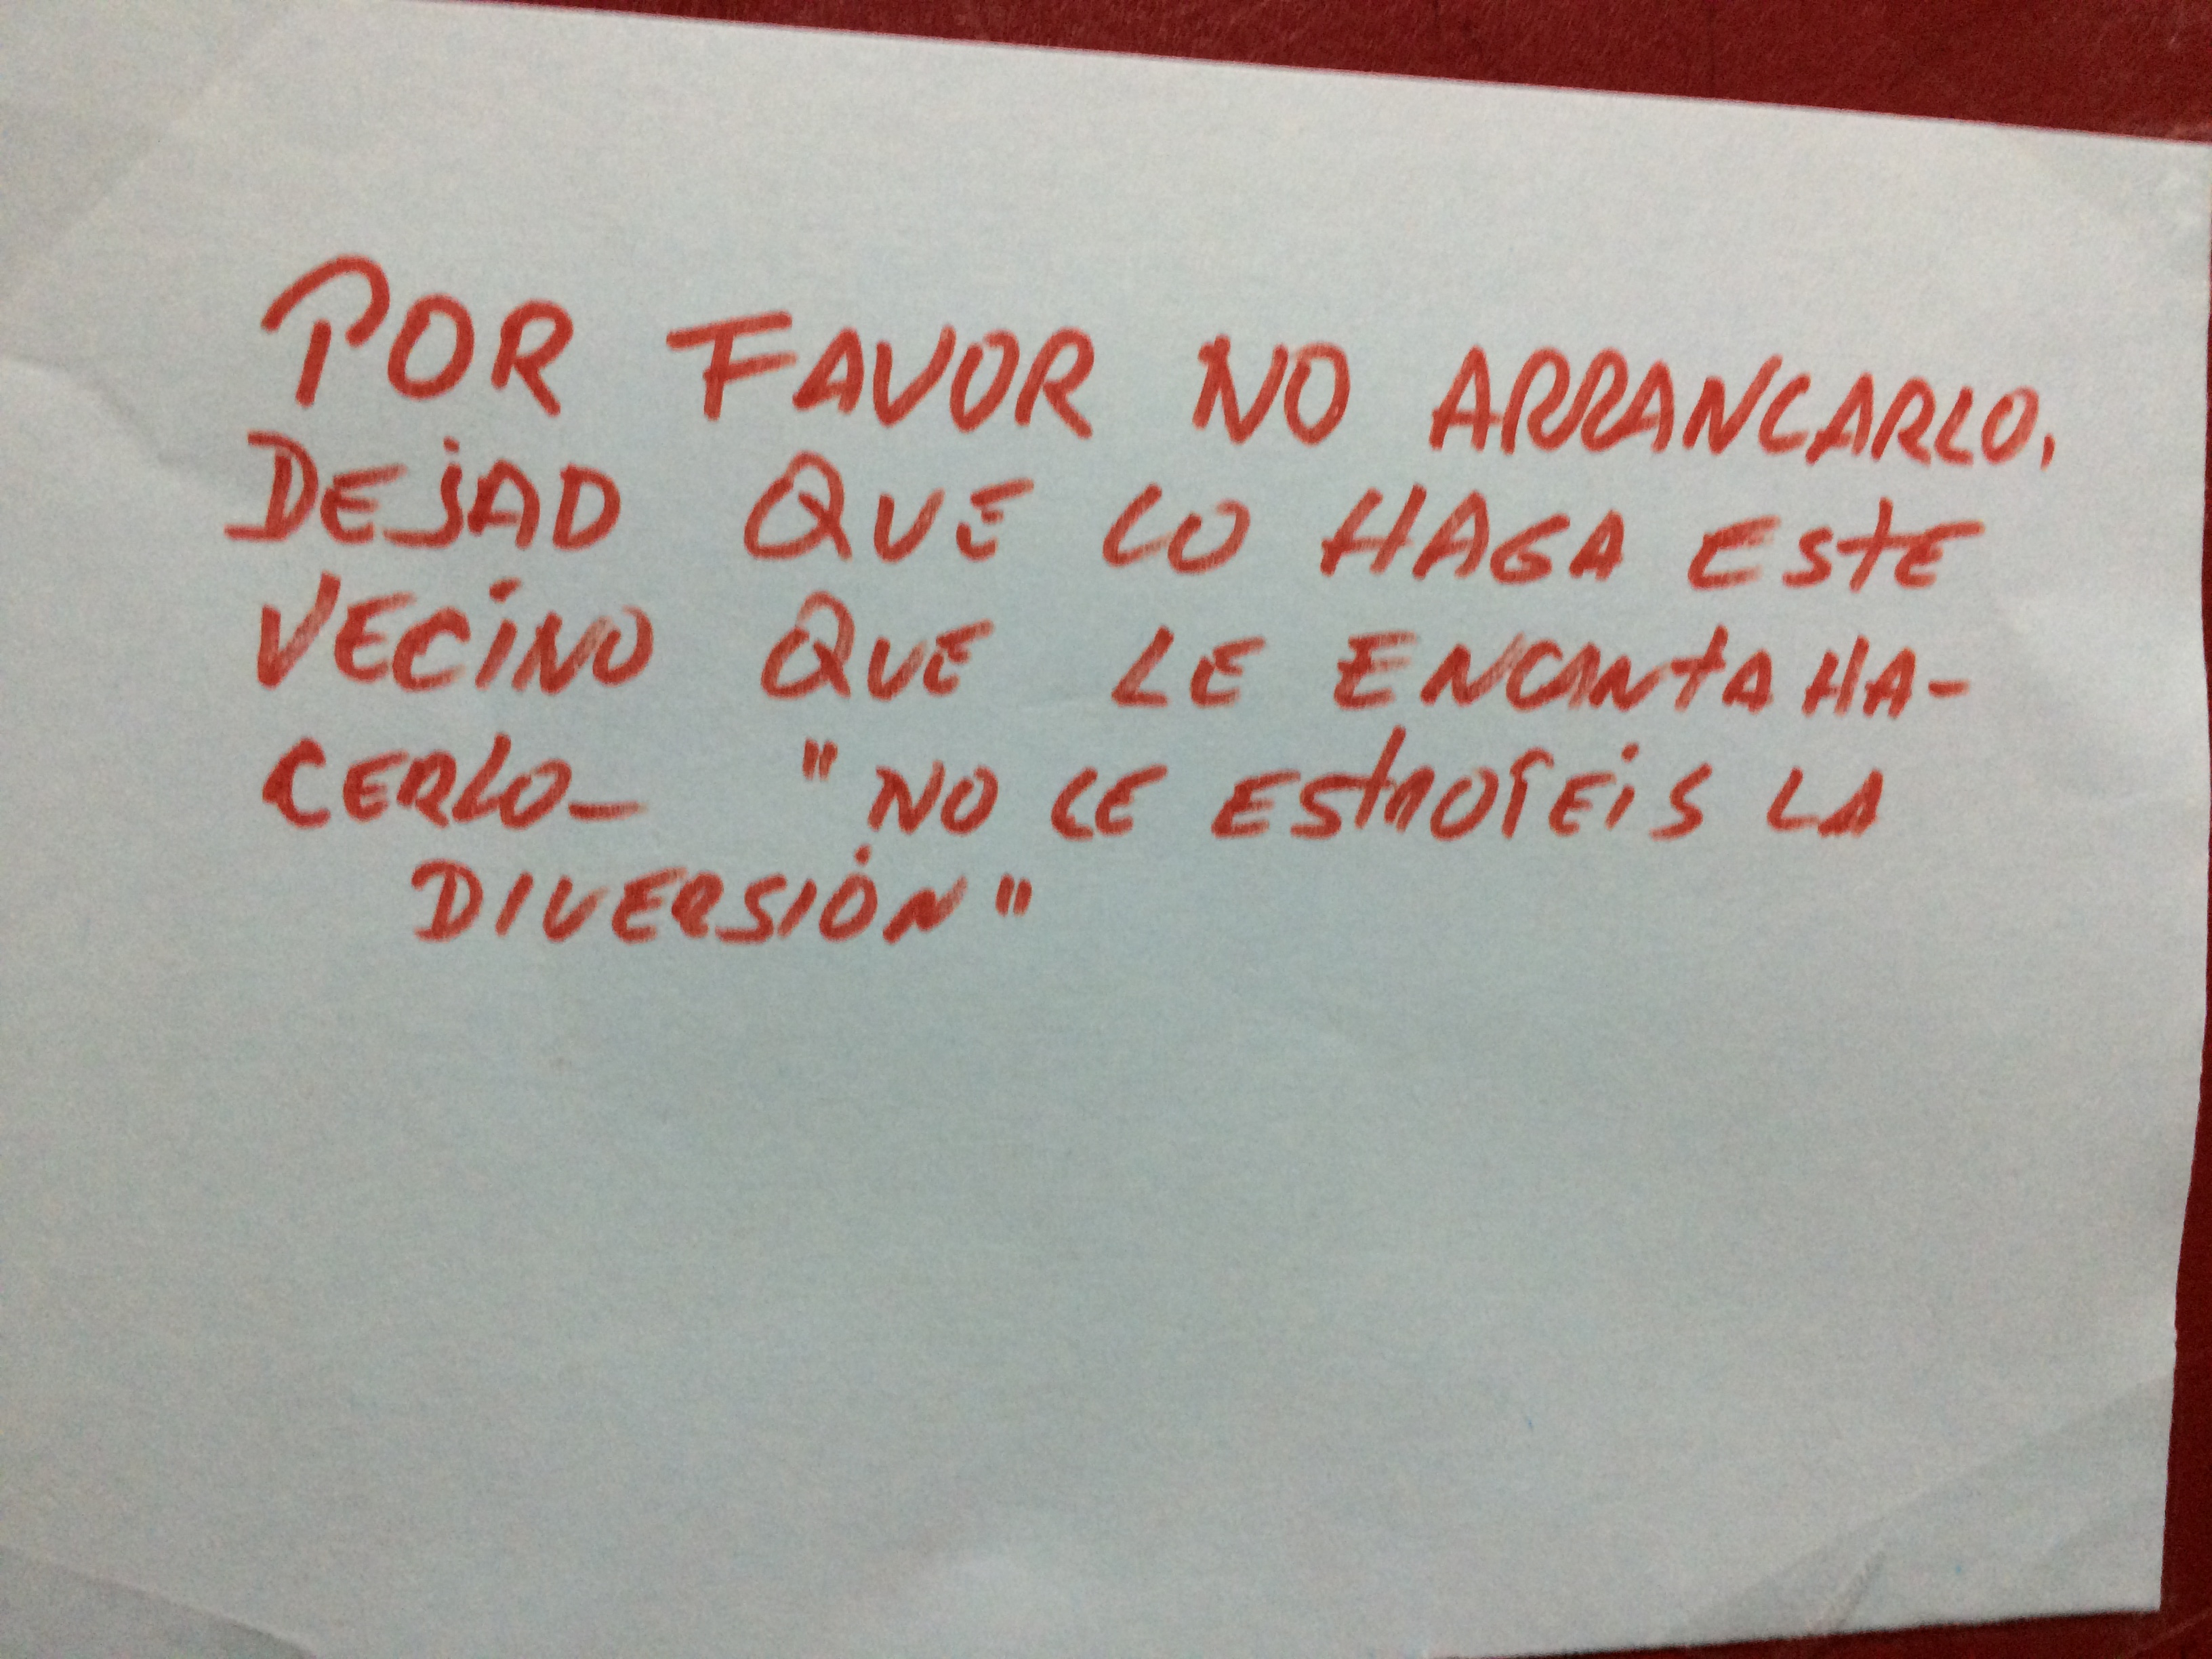 POR FAVOR NO ARRANCARLO.
DEJAD QUE LO HAGA ESTE
VECINO QUE LE ENCANTA HA-
CERLO_ "NO LE ESTROPEIS LA
DIVERSIÓN"